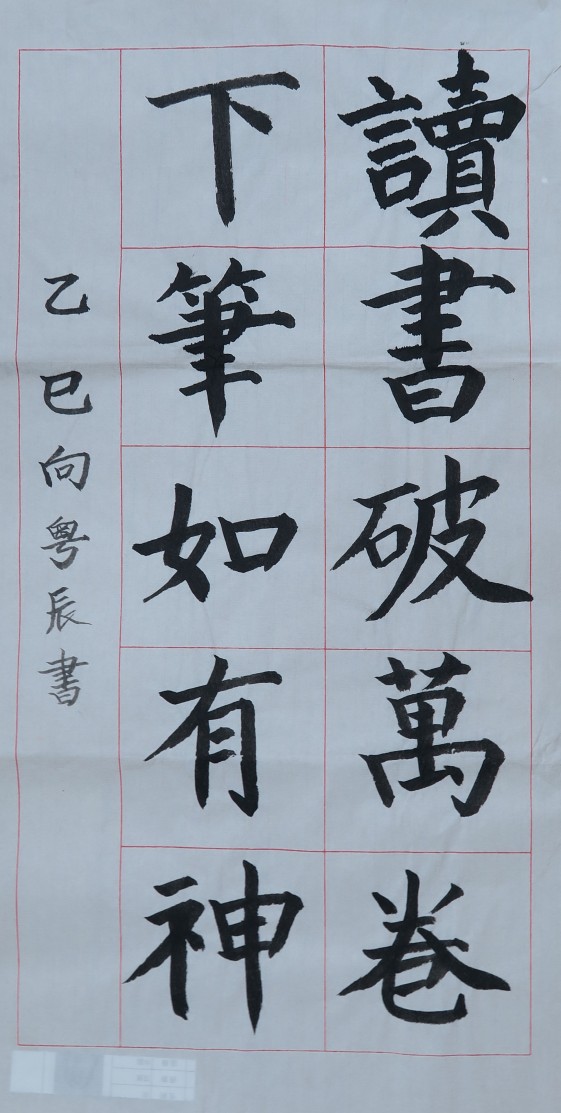 讀書破萬卷
下筆如有神
乙巳向粤辰書